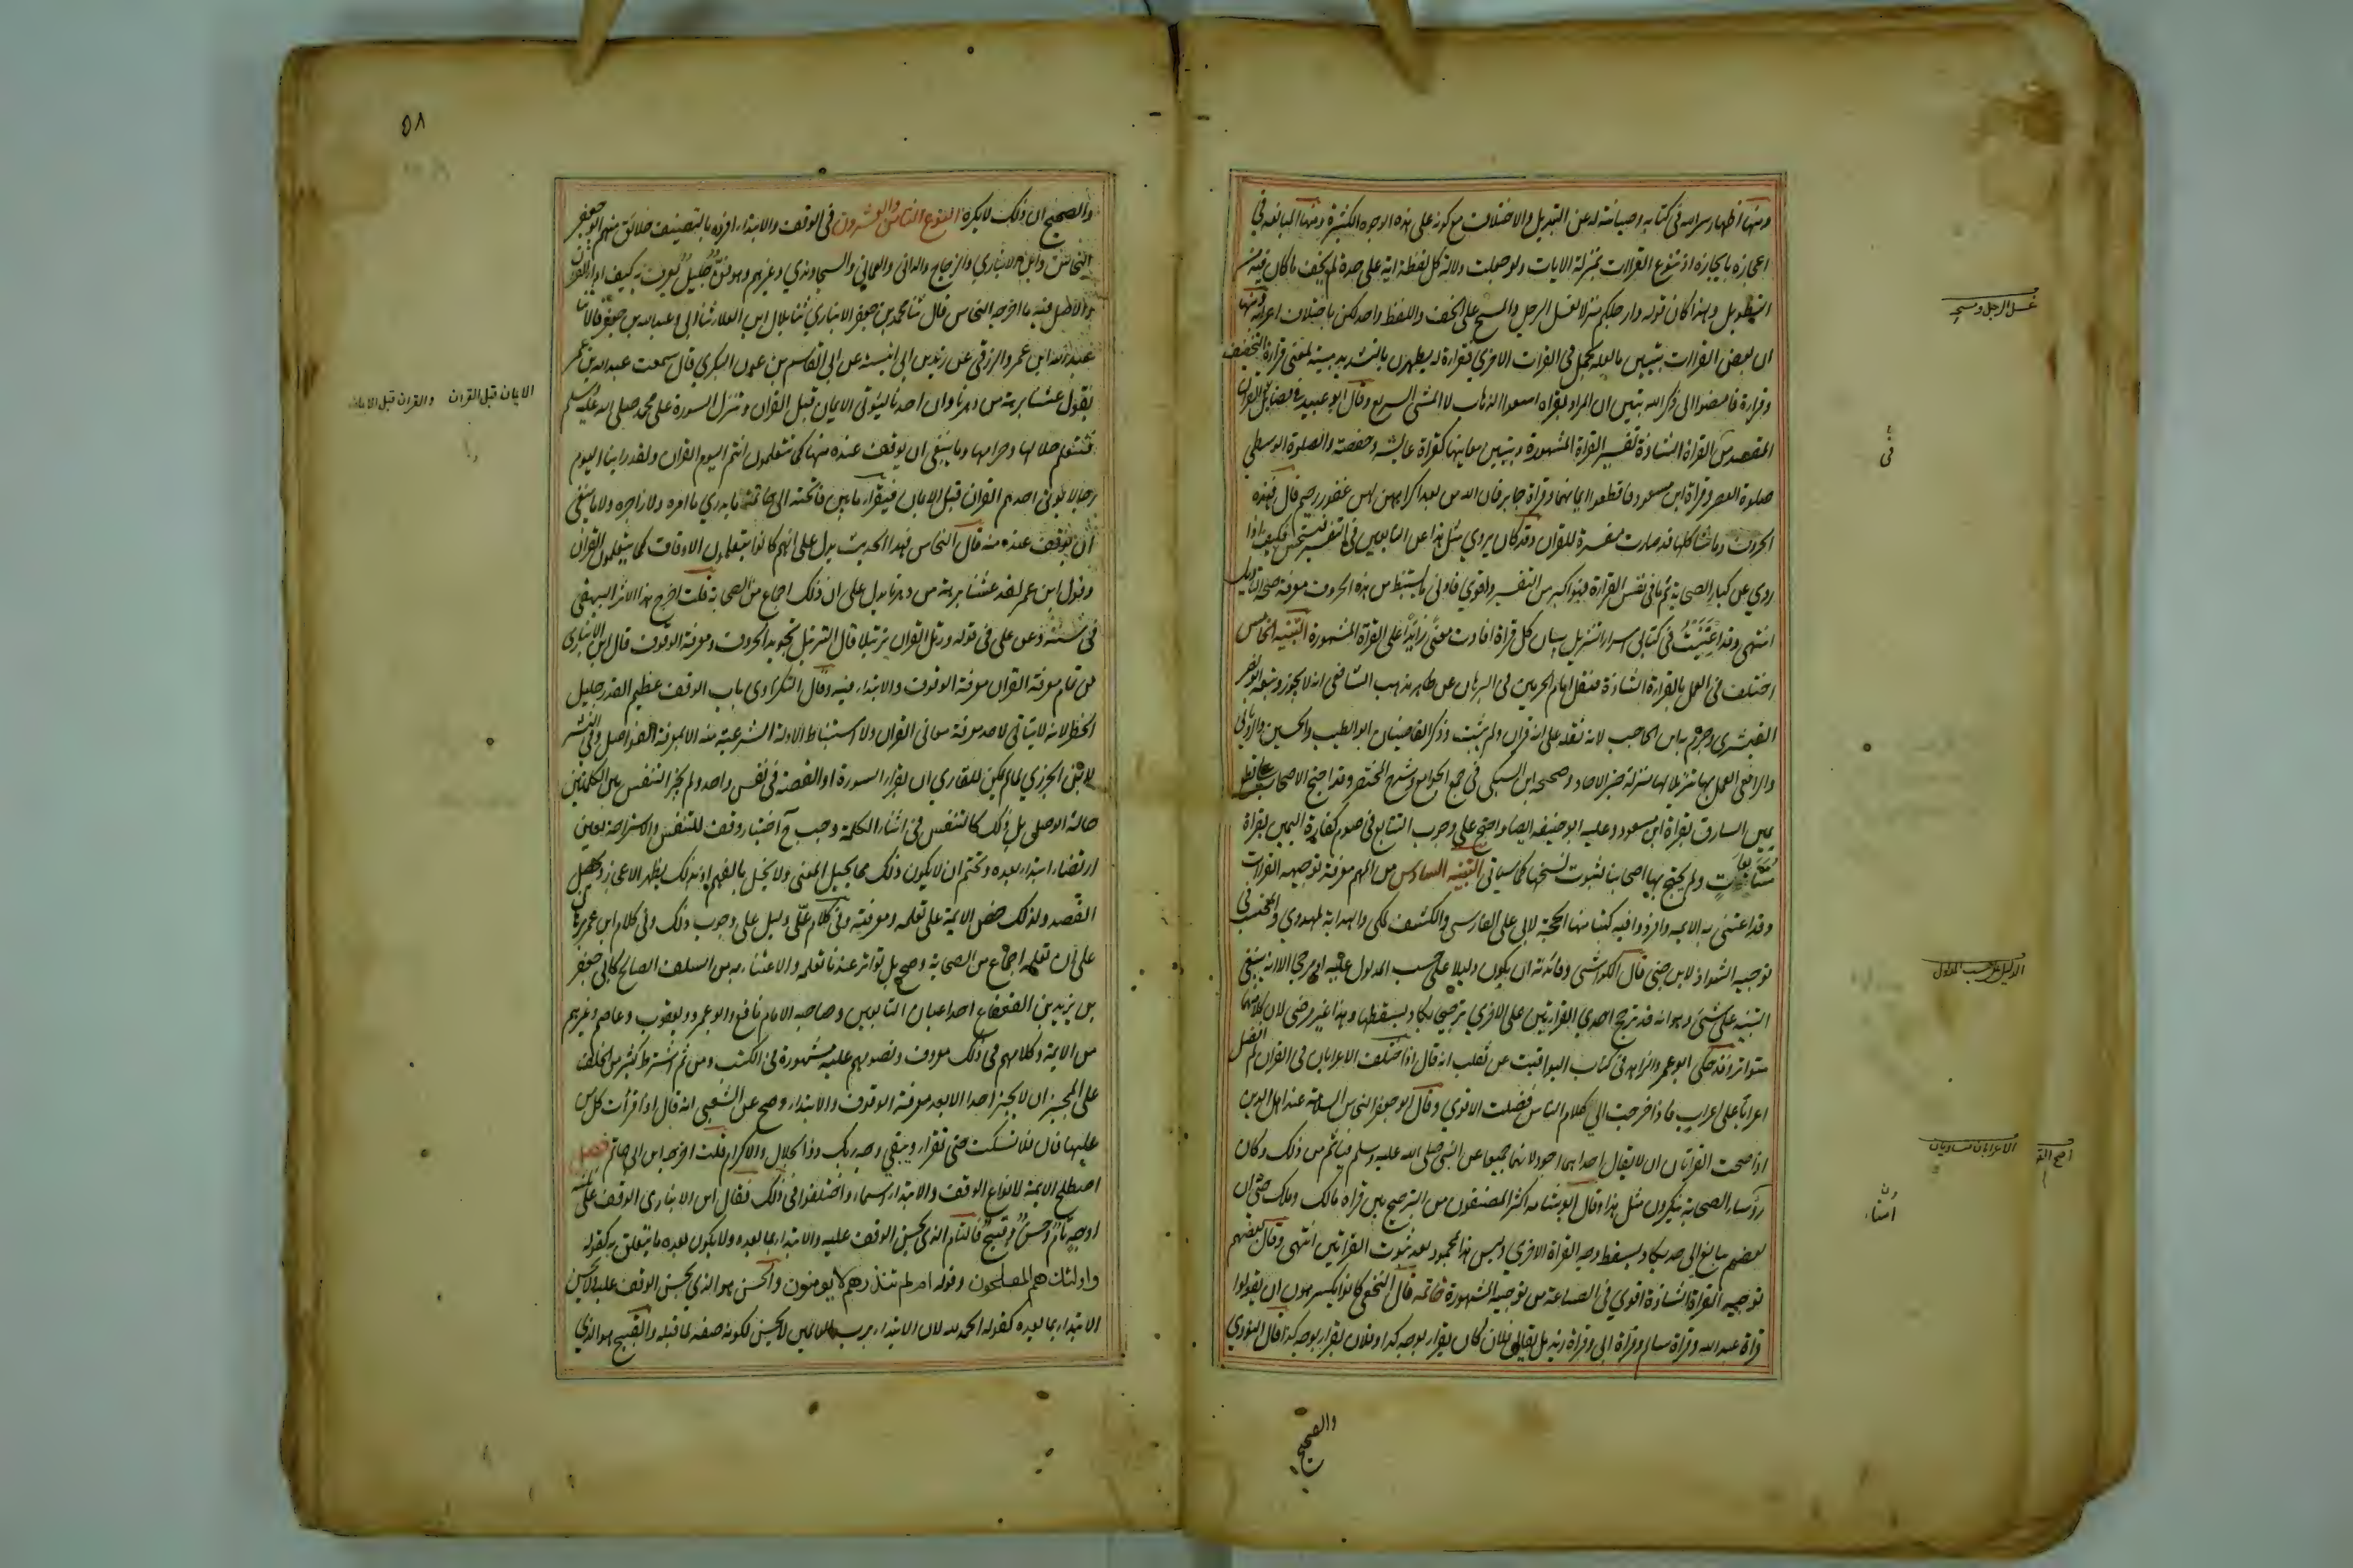 ومنها اظهار سر الله في كتابه وصيانته له عن التبديل والاختلاف مع كونه على هذه الاوجه الكثيرة ومنها المبالغة في
اعجازه بايجازه اذ تنوع القراات بمنزلة الايات ولو جعلت دلالة كل لفظة اية على حدة لم يخف ما كان فيه من
التطويل ولهذا كان قوله وارجلكم منزلا لغسل الرجل والمسح على الخف واللفظ واحد لكن باختلاف اعرابه ومنها
ان بعض القراات يتبين ما لعله يجمل في القراة الاخرى فقراءة يطهرن بالتشديد مبينة لمعنى قراءة التخفيف
وقراءة فامضوا الى ذكر الله تبين ان المراد بقراءة اسعوا الذهاب لا المشي السريع وقال ابو عبيد في فضايل القران
المقصد من القراة الشاذة تفسير القراة المشهورة وتبيين معانيها كقراة عايشة وحفصة والصلوة الوسطى
صلوة العصر وقراة ابن مسعود فاقطعوا ايمانهما وقراة جابر فان الله من بعد اكراههن لهن غفور رحيم قال فهذه
الحروف وما شاكلها قد صارت مفسرة للقران وقد كان يروى مثل هذا عن التابعين في التفسير فيستحسن فكيف اذا
روي عن كبار الصحابة ثم صار في نفس القراءة فهو اكبر من التفسير واقوى فادنى ما يستنبط من هذه الحروف معرفة صحة التاويل
انتهى وقد اعتنيت في كتابي اسرار التنزيل ببيان كل قراة افادت معنى زائدا على القراة المشهورة التنبيه الخامس
اختلف في العمل بالقراءة الشاذة فنقل امام الحرمين في البرهان عن ظاهر مذهب الشافعي انه لا يجوز وتبعه ابو نصر
القشيري وجزم به ابن الحاجب لانه نقله على انه قران ولم يثبت وذكر القاضيان ابو الطيب والحسين والروياني
والرافعي العمل بها تنزيلا لها منزلة خبر الاحاد وصححه ابن السبكي في جمع الجوامع وشرح المختصر وقد احتج الاصحاب على قطع
يمين السارق بقراة ابن مسعود وعليه ابو حنيفة ايضا واحتج على وجوب التتابع في صوم كفارة اليمين بقراة
متتابعات ولم يحتج بها اصحابنا لثبوت نسخها كما سياتي التنبيه السادس من المهم معرفة توجيه القراات
وقد اعتنى به الايمة وافردوا فيه كتبا منها الحجة لابي علي الفارسي والكشف لمكي والهداية للمهدوي والمحتسب في
توجيه الشواذ لابن جني قال الكواشي وفائدته ان يكون دليلا على حسب المدلول عليه او مرجحا الا انه ينبغي
التنبيه على شئ وهو انه قد ترجح احدى القراءتين على الاخرى ترجيحا يكاد يسقطها وهذا غير مرضي لان كلاهما
متواتر وقد حكى ابو عمر والزاهد في كتاب اليواقيت عن ثعلب انه قال اذا اختلف الاعرابان في القران لم افضل
اعرابا على اعراب فاذا خرجت الى كلام الناس فضلت الاقوى وقال ابو جعفر النحاس السلامة عند اهل الدين
اذا صحت القراتان ان لا يقال احدهما اجود لانهما جميعا عن النبي صلى الله عليه وسلم فياثم من قال ذلك وكان
رؤساء الصحابة ينكرون مثل هذا وقال ابو شامة اكثر المصنفون من الترجيح بين قراة مالك وملك حتى ان
بعضهم يبالغ الى حد يكاد يسقط وجه القراة الاخرى وليس هذا بمحمود بعد ثبوت القراتين انتهى وقال بعضهم
توجيه القراة الشاذة اقوى في الصناعة من توجيه المشهورة خاتمة قال النخعي كانوا يكرهون ان يقولوا
قراة عبد الله وقراة سالم وقراة ابي وقراة زيد بل يقال فلان كان يقرا بوجه كذا وفلان يقرا بوجه كذا قال النووي
والصحيح
غسل الرجل ومسحه
في
الدليل على حسب المدلول
الاعرابان متساويان
والصحيح ان ذلك لا يكره النوع الثامن والعشرون في الوقف والابتداء افرده بالتصنيف خلائق منهم ابو جعفر
النحاس وابن الانباري والزجاج والداني والعماني والسجاوندي وغيرهم وهو فن جليل يعرف به كيف اداء القران
والاصل فيه ما اخرجه النحاس قال ثنا محمد بن جعفر الانباري ثنا هلال ابن العلاء ثنا ابي وعبد الله بن جعفر قالا ثنا
عبيد الله ابن عمرو الزرقي عن زيد بن ابي انيسة عن القاسم بن عون البكري قال سمعت عبد الله بن عمر
يقول عشنا برهة من دهرنا وان احدنا ليؤتى الايمان قبل القران وتنزل السورة على محمد صلى الله عليه وسلم
فنتعلم حلالها وحرامها وما ينبغي ان يوقف عنده منها كما تتعلمون انتم اليوم القران ولقد راينا اليوم
رجالا يؤتى احدهم القران قبل الايمان فيقرا ما بين فاتحته الى خاتمته ما يدري ما امره ولا زاجره ولا ما ينبغي
ان يوقف عنده منه قال النحاس فهذا الحديث يدل على انهم كانوا يتعلمون الاوقاف كما يتعلمون القران
وقول ابن عمر لقد عشنا برهة من دهرنا يدل على ان ذلك اجماع من الصحابة قلت اخرج هذا الاثر البيهقي
في سننه وعن علي في قوله ورتل القران ترتيلا قال الترتيل تجويد الحروف ومعرفة الوقوف قال ابن الانباري
من تمام معرفة القران معرفة الوقوف والابتداء فيه وقال النكزاوي باب الوقف عظيم القدر جليل
الخطر لانه لا يتاتى لاحد معرفة معاني القران ولا استنباط الادلة الشرعية منه الا بمعرفة الفواصل وفي النشر
لابن الجزري لما لم يمكن للقاري ان يقرا السورة او القصة في نفس واحد ولم يجز التنفس بين الكلمتين
حالة الوصل بل ذلك كالتنفس في اثناء الكلمة وجب ح اختيار وقف للتنفس والاستراحة وتعين
ارتضاء ابتداء بعده وتحتم ان لا يكون ذلك مما يحيل المعنى ولا يخل بالفهم اذ بذلك يظهر الاعجاز ويحصل
القصد ولذلك حض الايمة على تعلمه ومعرفته وفي كلام علي دليل على وجوب ذلك وفي كلام ابن عمر برهان
على ان تعلمه اجماع من الصحابة وصح بل تواتر عندنا تعلمه والاعتناء به من السلف الصالح كابي جعفر
بن يزيد بن القعقاع احد اعيان التابعين وصاحبه الامام نافع وابو عمرو ويعقوب وعاصم وغيرهم
من الايمة وكلامهم في ذلك معروف ونصوصهم عليه مشهورة في الكتب ومن ثم اشترط كثير من الخلف
على المجيز ان لا يجيز احدا الا بعد معرفة الوقوف والابتداء وصح عن الشعبي انه قال اذا قرأت كل من
عليها فان فلا تسكت حتى تقرا ويبقى وجه ربك ذو الجلال والاكرام قلت اخرجه ابن ابي حاتم فصل
اصطلح الايمة لانواع الوقف والابتداء اسماء واختلفوا في ذلك فقال ابن الانباري الوقف على ثلثة
اوجه تام وحسن وقبيح فالتام الذي يحسن الوقف عليه والابتداء بما بعده ولا يكون بعده ما يتعلق به كقوله
واولئك هم المفلحون وقوله ام لم تنذرهم لا يومنون والحسن هو الذي يحسن الوقف عليه ولا يحسن
الابتداء بما بعده كقوله الحمد لله لان الابتداء برب العالمين لا يحسن لكونه صفة لما قبله والقبيح هو الذي
الايمان قبل القران والقران قبل الايمان
٥٨